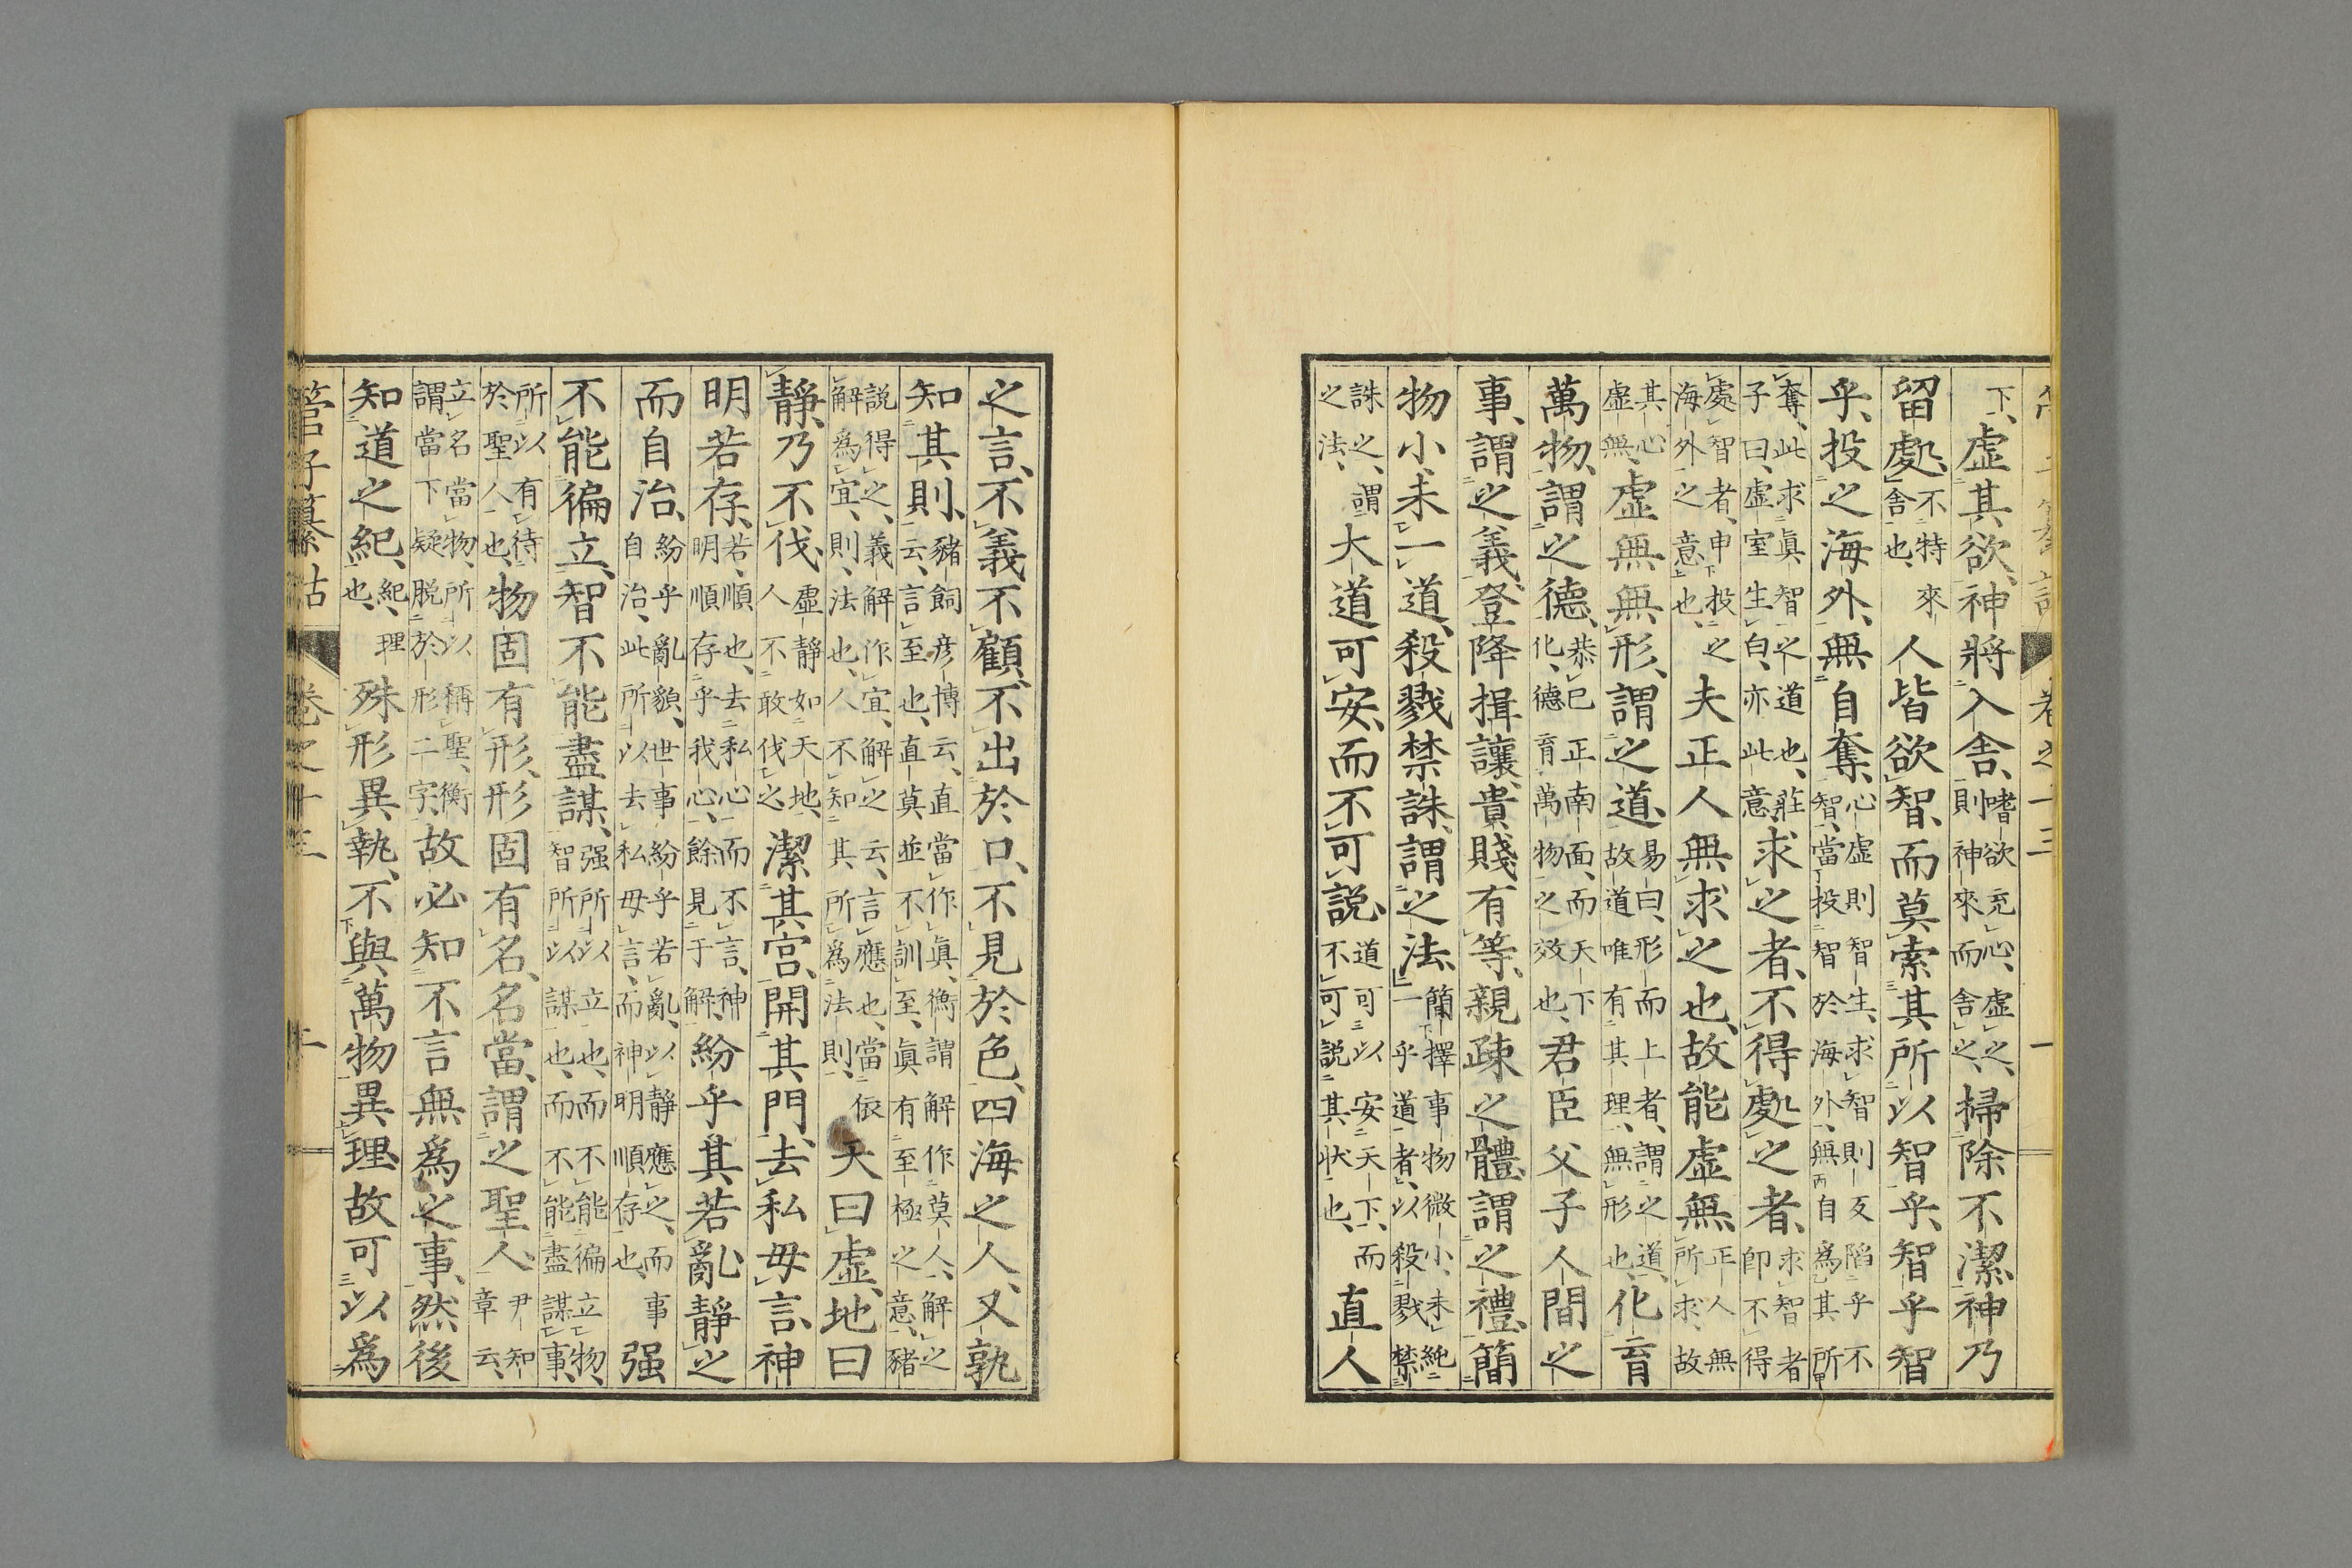 下、虛其欲、神將入舍、嗜欲充心、虛之、則神來而舍之、掃除不潔、神乃
留處、不特來舍也、人皆欲智、而莫索其所以智乎、智乎智
乎、投之海外、無自奪、心虛則智生、求智則反陷乎不智、當投智於海外、無自爲其所
奪、此求眞智之道也、莊子曰、虛室生白、亦此意、求之者、不得處之者、求智者卽不得
處智者、申投之海外之意也、夫正人無求之也、故能虛無、正人無所求、故
其心虛無、虛無無形、謂之道、易曰、形而上者、謂之道、故道唯有其理、無形也、化育
萬物、謂之德、恭己正南面、而天下化、德育萬物之效也、君臣父子人間之
事、謂之義、登降揖讓、貴賤有等、親疎之體、謂之禮、簡
物小未一道、殺戮禁誅、謂之法、簡擇事物微小、未純一乎道者、以殺戮禁
誅之、謂之法、大道可安、而不可說、道可以安天下、而不可說其狀也、直人
之言、不義不顧、不出於口、不見於色、四海之人、又孰
知其則、豬飼彥博云、直當作眞、衡謂解作莫人、解之云、言至也、直莫並不訓至、眞有至極之意、豬
說得之、義解作宜、解之云、言應也、當依解爲宜、則、法也、人不知其所爲法則、天曰虛、地曰
靜、乃不伐、虛靜如天地、人不敢伐之、潔其宮、開其門、去私毋言、神
明若存、若、順也、去私心而不言、神明順存乎我心、餘見于解、紛乎其若亂、靜之
而自治、紛乎亂貌、世事紛乎若亂、以靜應之、而事自治、此所以去私毋言、而神明順存也、强
不能徧立、智不能盡謀、强所以立也、而不能徧立物、智所以謀也、而不能盡謀事、
所以有待於聖人也、物固有形、形固有名、名當、謂之聖人、尹知章云、
立名當物、所以稱聖、衡謂當下疑脫於形二字、故必知不言無爲之事、然後
知道之紀、紀、理也、殊形異埶、不與萬物異理、故可以爲
管子纂詁 卷之十三